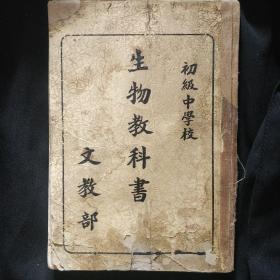 初級中學校
生物教科書
文教部